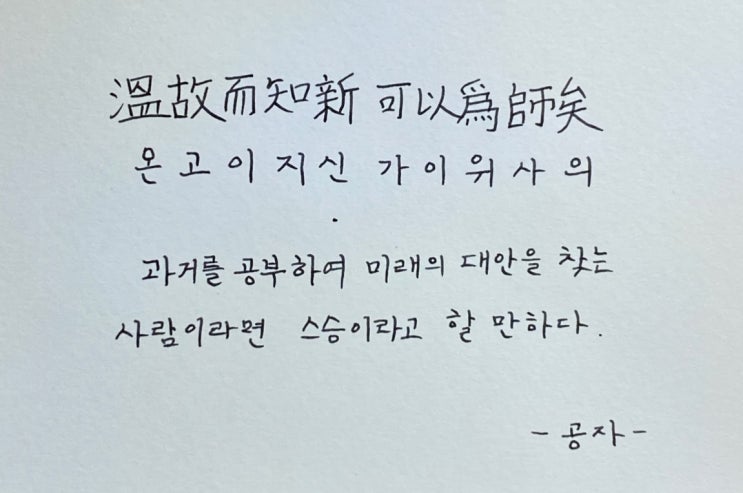 溫故而知新 可以爲師矣
온고이지신 가이위사의
.
과거를 공부하여 미래의 대안을 찾는
사람이라면 스승이라고 할 만하다.
- 공자 -